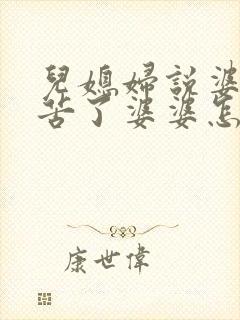 兒媳婦說婆
苦了婆婆怎
康世偉